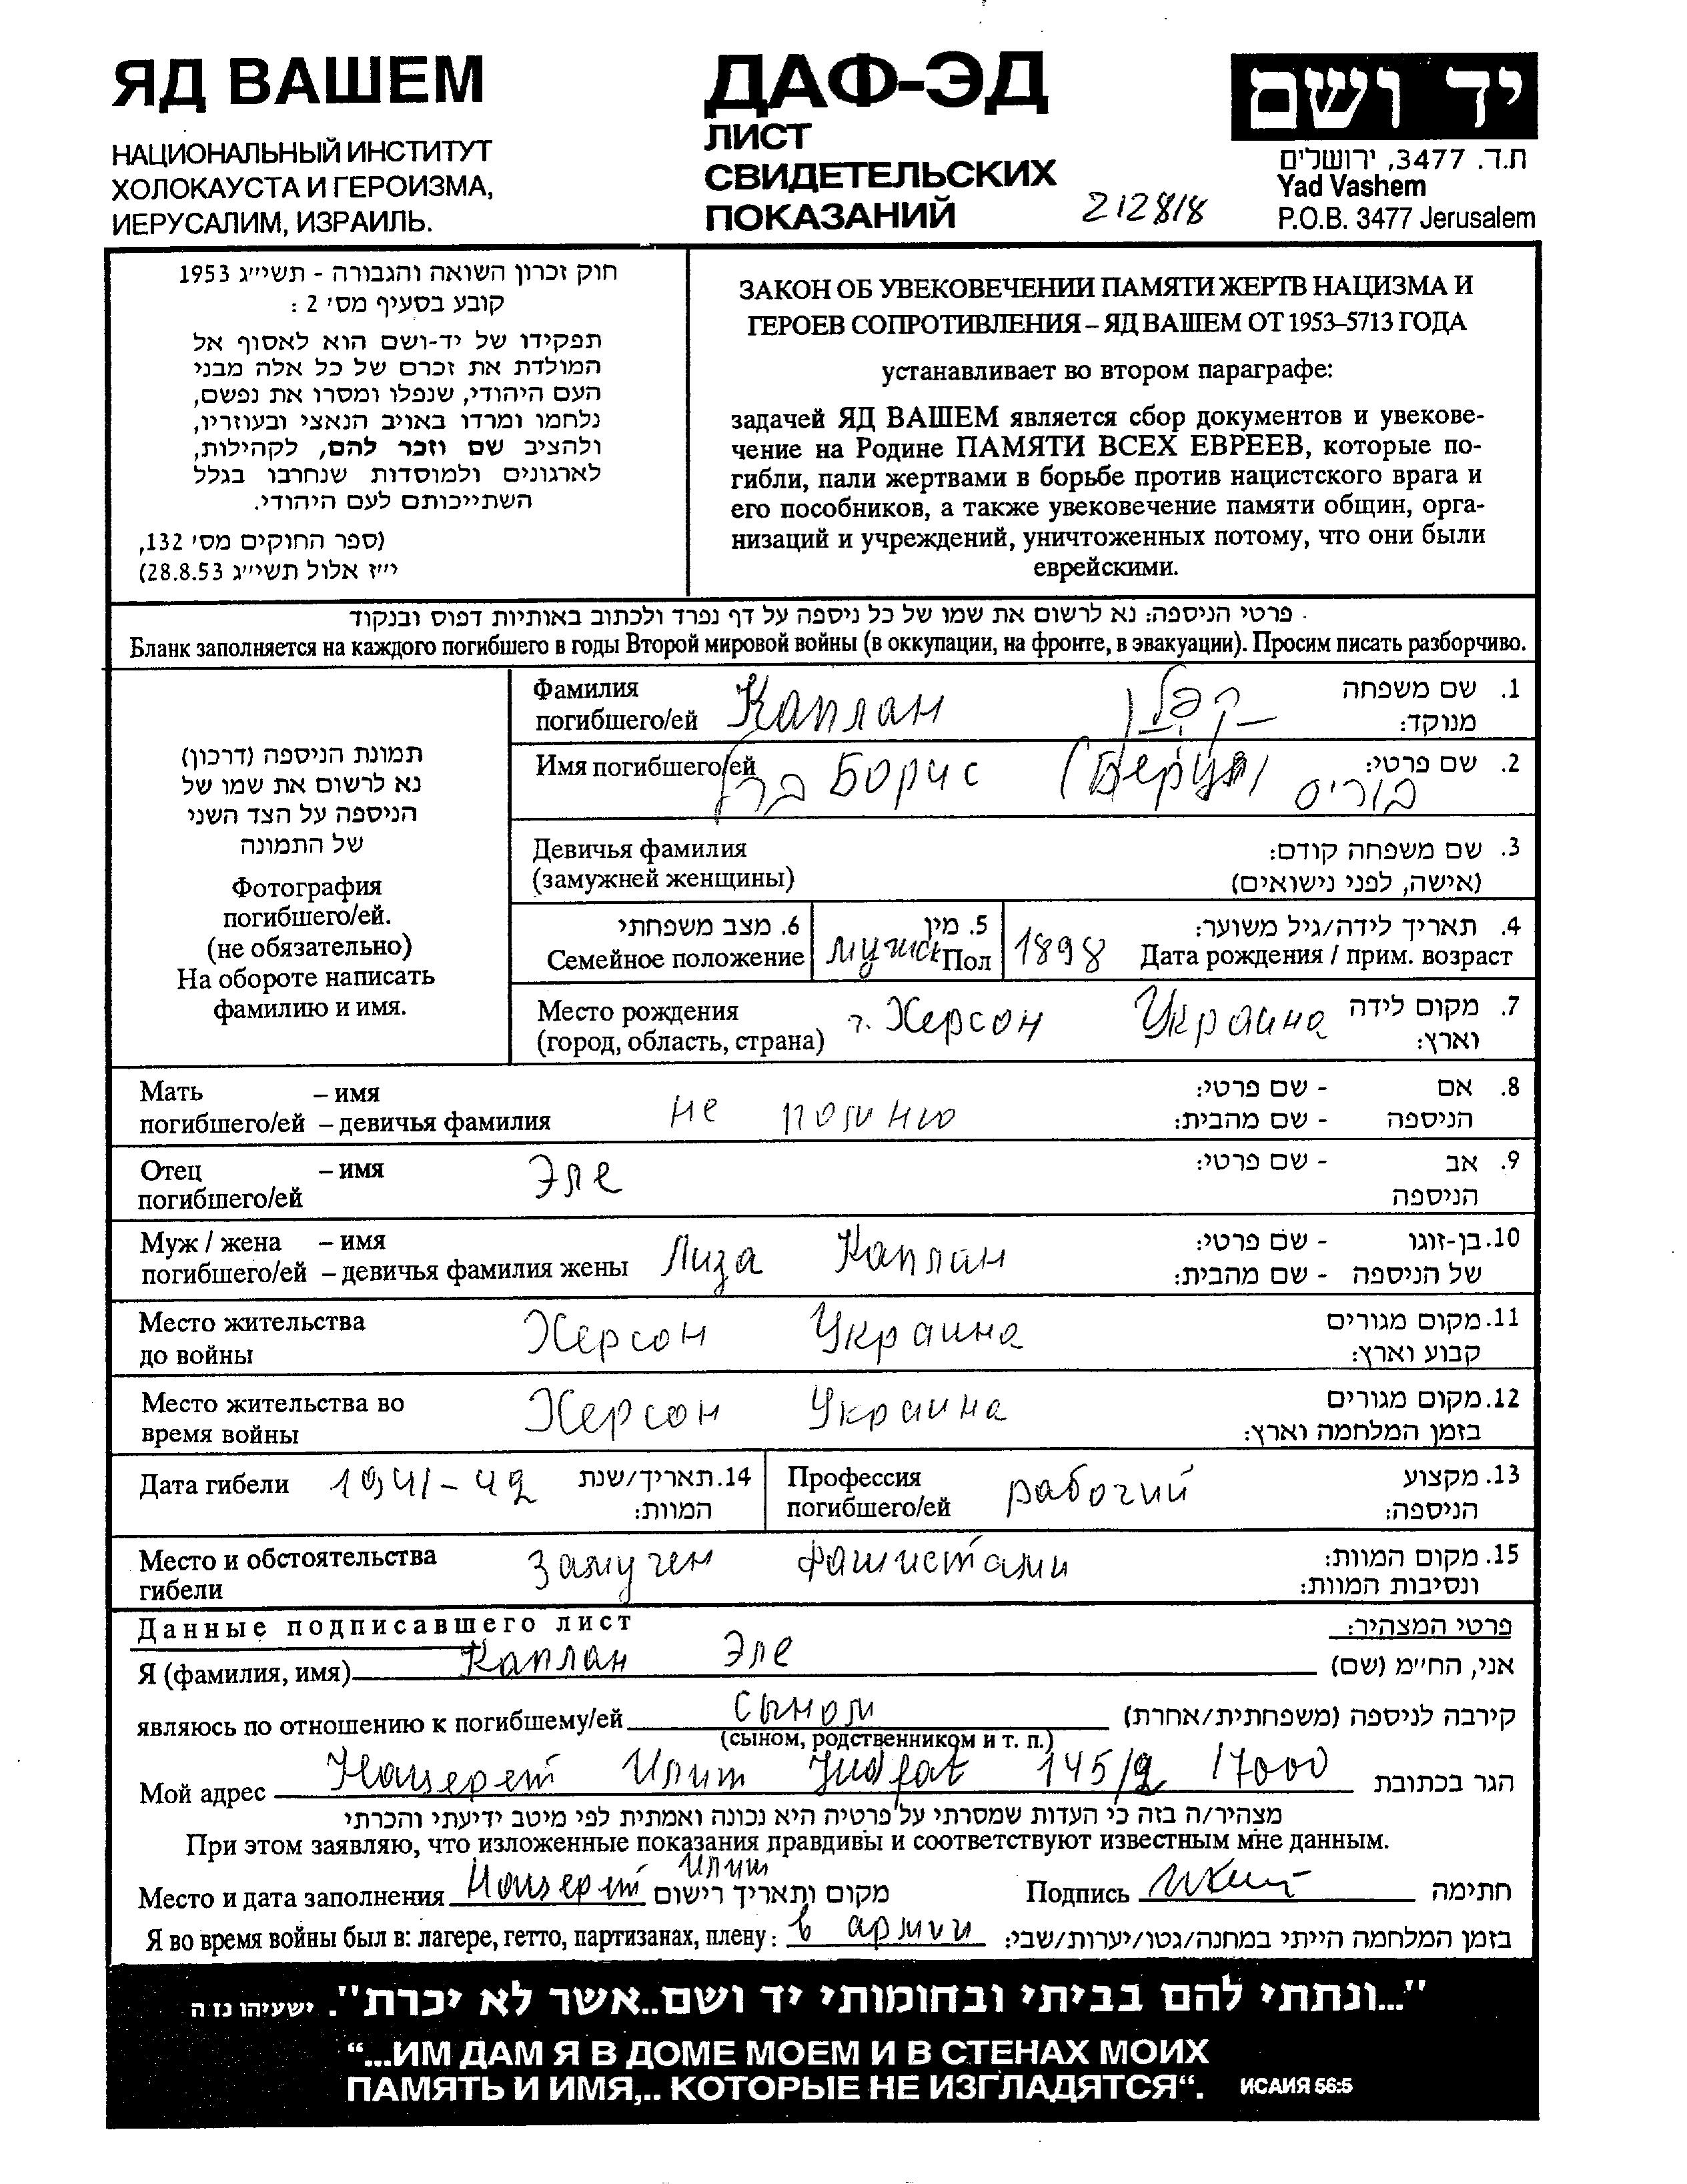 ЯД ВАШЕМ
НАЦИОНАЛЬНЫЙ ИНСТИТУТ
ХОЛОКАУСТА И ГЕРОИЗМА,
ИЕРУСАЛИМ, ИЗРАИЛЬ.
ДАФ-ЭД
ЛИСТ
СВИДЕТЕЛЬСКИХ
ПОКАЗАНИЙ
212818
יד ושם
ת.ד. 3477, ירושלים
Yad Vashem
P.O.B. 3477 Jerusalem
חוק זכרון השואה והגבורה - תשי״ג 1953
קובע בסעיף מס׳ 2 :
תפקידו של יד-ושם הוא לאסוף אל
המולדת את זכרם של כל אלה מבני
העם היהודי, שנפלו ומסרו את נפשם,
נלחמו ומרדו באויב הנאצי ובעוזריו,
ולהציב שם וזכר להם, לקהילות,
לארגונים ולמוסדות שנחרבו בגלל
השתייכותם לעם היהודי.
(ספר החוקים מס׳ 132,
י״ז אלול תשי״ג 28.8.53)
ЗАКОН ОБ УВЕКОВЕЧЕНИИ ПАМЯТИ ЖЕРТВ НАЦИЗМА И
ГЕРОЕВ СОПРОТИВЛЕНИЯ – ЯД ВАШЕМ ОТ 1953–5713 ГОДА
устанавливает во втором параграфе:
задачей ЯД ВАШЕМ является сбор документов и увекове-
чение на Родине ПАМЯТИ ВСЕХ ЕВРЕЕВ, которые по-
гибли, пали жертвами в борьбе против нацистского врага и
его пособников, а также увековечение памяти общин, орга-
низаций и учреждений, уничтоженных потому, что они были
еврейскими.
פרטי הניספה: נא לרשום את שמו של כל ניספה על דף נפרד ולכתוב באותיות דפוס ובנקוד
Бланк заполняется на каждого погибшего в годы Второй мировой войны (в оккупации, на фронте, в эвакуации). Просим писать разборчиво.
תמונת הניספה (דרכון)
נא לרשום את שמו של
הניספה על הצד השני
של התמונה
Фотография
погибшего/ей.
(не обязательно)
На обороте написать
фамилию и имя.
Фамилия Каплан קפלן 1. שם משפחה
погибшего/ей מנוקד:
Имя погибшего/ей Борис 2. שם פרטי:
בוריס
Девичья фамилия 3. שם משפחה קודם:
(замужней женщины) (אישה, לפני נישואים)
6. מצב משפחתי 5. מין 4. תאריך לידה/גיל משוער:
Семейное положение мужск Пол 1898 Дата рождения / прим. возраст
Место рождения г. Херсон Украина 7. מקום לידה
(город, область, страна) וארץ:
Мать – имя - שם פרטי: 8. אם
погибшего/ей – девичья фамилия не помню - שם מהבית: הניספה
Отец – имя Эле - שם פרטי: 9. אב
погибшего/ей הניספה
Муж / жена – имя - שם פרטי: 10. בן-זוגו
погибшего/ей – девичья фамилия жены Лиза Каплан - שם מהבית: של הניספה
Место жительства Херсон Украина 11. מקום מגורים
до войны קבוע וארץ:
Место жительства во Херсон Украина 12. מקום מגורים
время войны בזמן המלחמה וארץ:
Дата гибели 1941-42 14. תאריך/שנת
המוות:
Профессия рабочий 13. מקצוע
погибшего/ей הניספה:
Место и обстоятельства замучен фашистами 15. מקום המוות:
гибели ונסיבות המוות:
Данные подписавшего лист פרטי המצהיר:
Я (фамилия, имя) Каплан Эле אני, החי״מ (שם)
являюсь по отношению к погибшему/ей сыном קירבה לניספה (משפחתית/אחרת)
(сыном, родственником и т. п.)
Мой адрес Нацерет Илит 145/2 17000 הגר בכתובת
מצהיר/ה בזה כי העדות שמסרתי על פרטיה היא נכונה ואמתית לפי מיטב ידיעתי והכרתי
При этом заявляю, что изложенные показания правдивы и соответствуют известным мне данным.
Место и дата заполнения Нацерет Илит מקום ותאריך רישום Подпись חתימה
Я во время войны был в: лагере, гетто, партизанах, плену: в армии בזמן המלחמה הייתי במחנה/גטו/יערות/שבי:
"...ונתתי להם בביתי ובחומותי יד ושם..אשר לא יכרת". ישעיהו נו ה
“...ИМ ДАМ Я В ДОМЕ МОЕМ И В СТЕНАХ МОИХ
ПАМЯТЬ И ИМЯ,.. КОТОРЫЕ НЕ ИЗГЛАДЯТСЯ“. ИСАИЯ 56:5